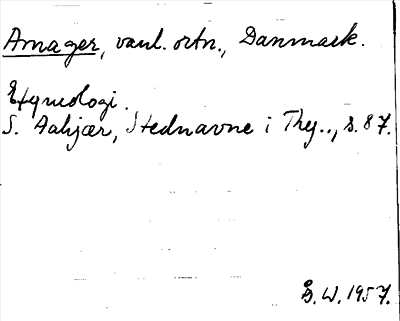 Amager, vanl. ortn., Danmark.
Etymologi.
S. Aakjær, Stednavne i Thy.., s. 87.
B.W. 1957.